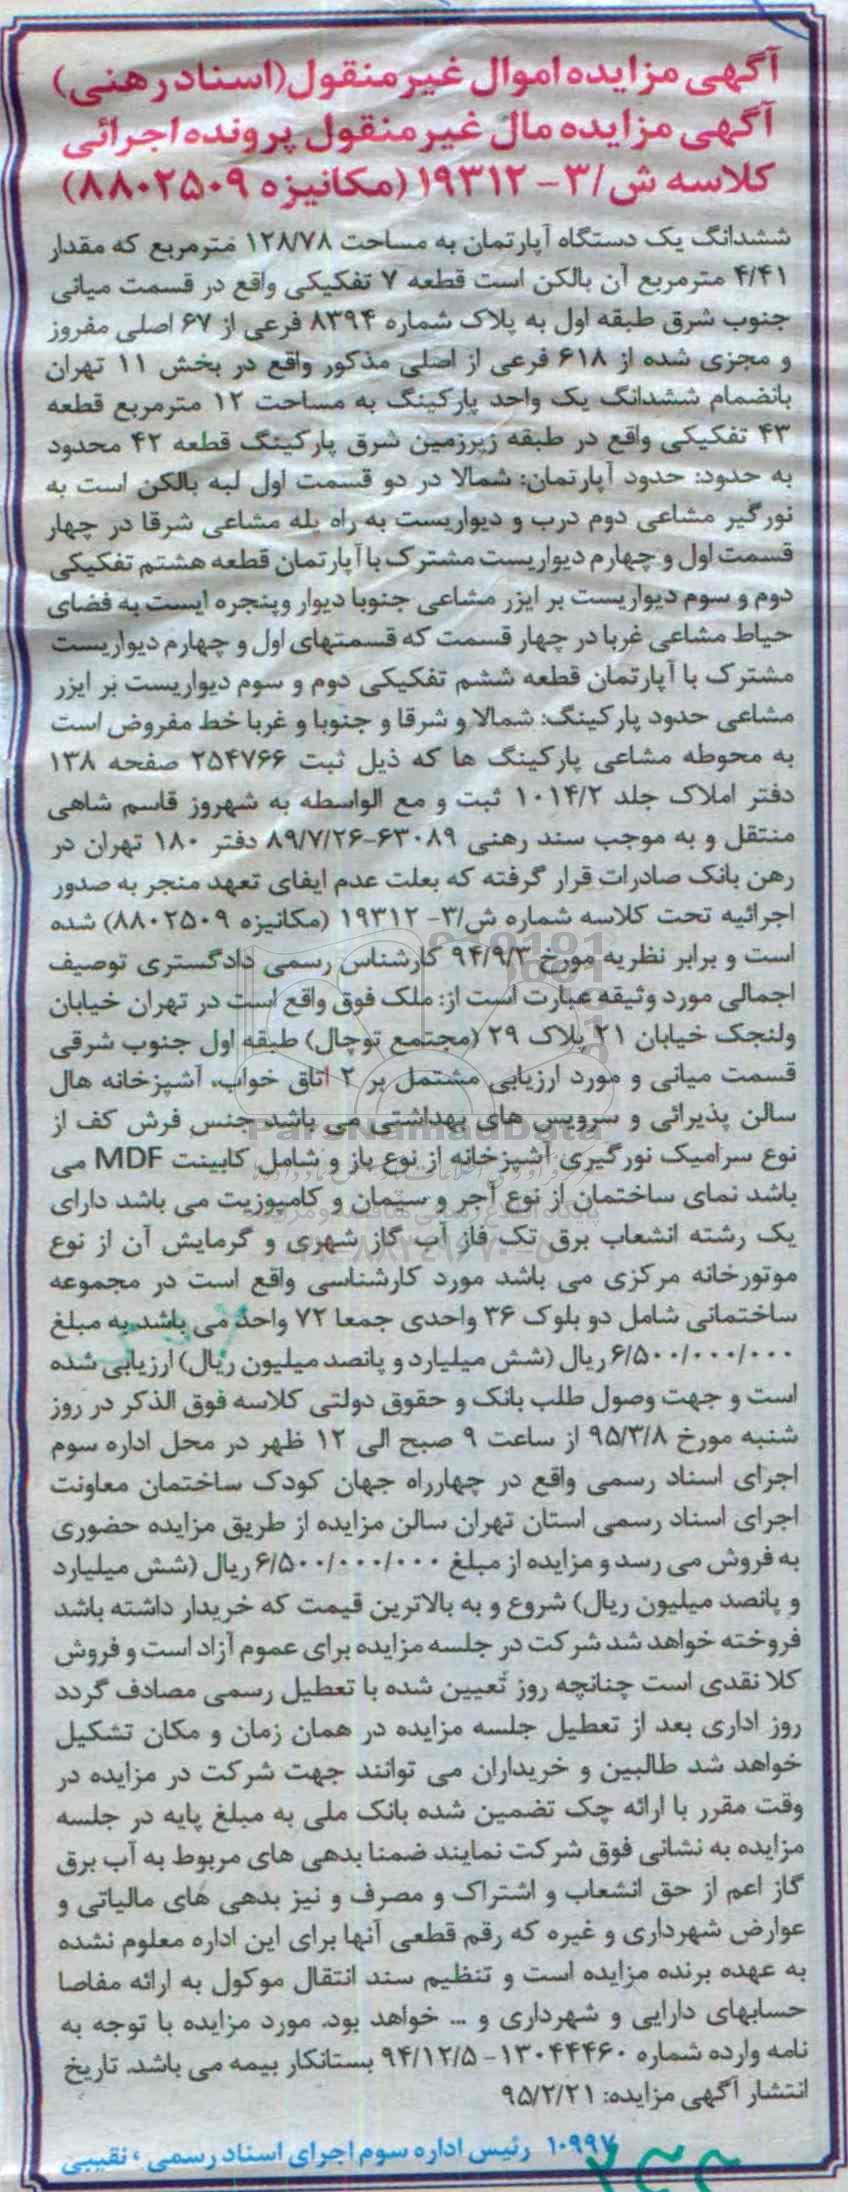 آگهی مزایده اموال غیر منقول (اسناد رهنی)
آگهی مزایده مال غیر منقول پرونده اجرائی
کلاسه ش/۳- ۱۹۳۱۲ (مکانیزه ۸۸۰۲۵۰۹)
ششدانگ یک دستگاه آپارتمان به مساحت ۱۲۸/۷۸ مترمربع که مقدار
۴/۴۱ مترمربع آن بالکن است قطعه ۷ تفکیکی واقع در قسمت میانی
جنوب شرق طبقه اول به پلاک شماره ۸۳۹۴ فرعی از ۶۷ اصلی مفروز
و مجزی شده از ۶۱۸ فرعی از اصلی مذکور واقع در بخش ۱۱ تهران
بانضمام ششدانگ یک واحد پارکینگ به مساحت ۱۲ مترمربع قطعه
۴۳ تفکیکی واقع در طبقه زیرزمین شرق پارکینگ قطعه ۴۲ محدود
به حدود: حدود آپارتمان: شمالا در دو قسمت اول لبه بالکن است به
نورگیر مشاعی دوم درب و دیواریست به راه پله مشاعی شرقا در چهار
قسمت اول و چهارم دیواریست مشترک با آپارتمان قطعه هشتم تفکیکی
دوم و سوم دیواریست بر ایزر مشاعی جنوبا دیوار وپنجره ایست به فضای
حیاط مشاعی غربا در چهار قسمت که قسمتهای اول و چهارم دیواریست
مشترک با آپارتمان قطعه ششم تفکیکی دوم و سوم دیواریست بر ایزر
مشاعی حدود پارکینگ: شمالا و شرقا و جنوبا و غربا خط مفروض است
به محوطه مشاعی پارکینگ ها که ذیل ثبت ۲۵۴۷۶۶ صفحه ۱۳۸
دفتر املاک جلد ۱۰۱۴/۲ ثبت و مع الواسطه به شهروز قاسم شاهی
منتقل و به موجب سند رهنی ۶۳۰۸۹-۸۹/۷/۲۶ دفتر ۱۸۰ تهران در
رهن بانک صادرات قرار گرفته که بعلت عدم ایفای تعهد منجر به صدور
اجرائیه تحت کلاسه شماره ش/۳- ۱۹۳۱۲ (مکانیزه ۸۸۰۲۵۰۹) شده
است و برابر نظریه مورخ ۹۴/۹/۳ کارشناس رسمی دادگستری توصیف
اجمالی مورد وثیقه عبارت است از: ملک فوق واقع است در تهران خیابان
ولنجک خیابان ۲۱ پلاک ۲۹ (مجتمع توچال) طبقه اول جنوب شرقی
قسمت میانی و مورد ارزیابی مشتمل بر ۲ اتاق خواب، آشپزخانه هال
سالن پذیرائی و سرویس های بهداشتی می باشد جنس فرش کف از
نوع سرامیک نورگیری آشپزخانه از نوع باز و شامل کابینت MDF می
باشد نمای ساختمان از نوع آجر و سیمان و کامپوزیت می باشد دارای
یک رشته انشعاب برق تک فاز آب گاز شهری و گرمایش آن از نوع
موتورخانه مرکزی می باشد مورد کارشناسی واقع است در مجموعه
ساختمانی شامل دو بلوک ۳۶ واحدی جمعا ۷۲ واحد می باشد به مبلغ
۶/۵۰۰/۰۰۰/۰۰۰ ریال (شش میلیارد و پانصد میلیون ریال) ارزیابی شده
است و جهت وصول طلب بانک و حقوق دولتی کلاسه فوق الذکر در روز
شنبه مورخ ۹۵/۳/۸ از ساعت ۹ صبح الی ۱۲ ظهر در محل اداره سوم
اجرای اسناد رسمی واقع در چهارراه جهان کودک ساختمان معاونت
اجرای اسناد رسمی استان تهران سالن مزایده از طریق مزایده حضوری
به فروش می رسد و مزایده از مبلغ ۶/۵۰۰/۰۰۰/۰۰۰ ریال (شش میلیارد
و پانصد میلیون ریال) شروع و به بالاترین قیمت که خریدار داشته باشد
فروخته خواهد شد شرکت در جلسه مزایده برای عموم آزاد است و فروش
کلا نقدی است چنانچه روز تعیین شده با تعطیل رسمی مصادف گردد
روز اداری بعد از تعطیل جلسه مزایده در همان زمان و مکان تشکیل
خواهد شد طالبین و خریداران می توانند جهت شرکت در مزایده در
وقت مقرر با ارائه چک تضمین شده بانک ملی به مبلغ پایه در جلسه
مزایده به نشانی فوق شرکت نمایند ضمنا بدهی های مربوط به آب برق
گاز اعم از حق انشعاب و اشتراک و مصرف و نیز بدهی های مالیاتی و
عوارض شهرداری و غیره که رقم قطعی آنها برای این اداره معلوم نشده
به عهده برنده مزایده است و تنظیم سند انتقال موکول به ارائه مفاصا
حسابهای دارایی و شهرداری و ... خواهد بود. مورد مزایده با توجه به
نامه وارده شماره ۱۳۰۴۴۴۶۰- ۹۴/۱۲/۵ بستانکار بیمه می باشد. تاریخ
انتشار آگهی مزایده: ۹۵/۲/۲۱
۱۰۹۹۷ رئیس اداره سوم اجرای اسناد رسمی، نقیبی
ParsNamadData